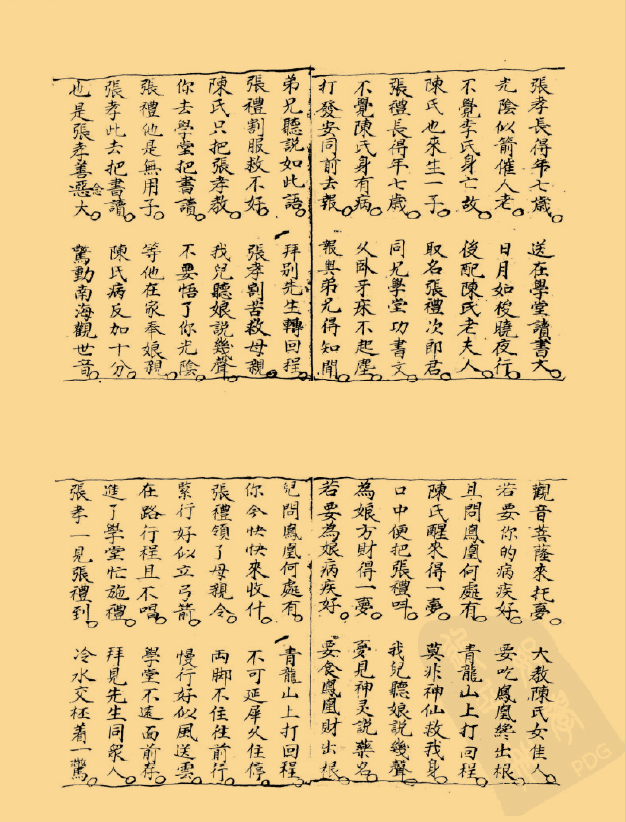 張孝長得年七歲 送在學堂讀書文
光陰似箭催人老 日月如梭曉夜行
不覺李氏身亡故 後配陳氏老夫人
陳氏也來生一子 取名張禮次郎君
張禮長得年七歲 同兄學堂功書文
不覺陳氏身有病 久卧牙床不起塵
打發安同前去報 報與弟兄得知聞
弟兄聽説如此語 拜别先生轉回程
張禮割服救不好 張孝割苦救母親
陳氏只把張孝教 我兒聽娘説幾聲
你去學堂把書讀 不要悟了你光陰
張禮他是無用子 等他在家奉娘親
張孝此去把書讀 陳氏病反加十分
也是張孝善惡念大 驚動南海觀世音
觀音菩薩來托夢 大教陳氏女佳人
若要你的病疾好 要吃鳳凰纔出根
且問鳳凰何處有 青龍山上打回程
陳氏醒來得一夢 莫非神仙救我身
口中便把張禮叫 我兒聽娘説幾聲
為娘方財得一夢 夢見神灵説藥名
若要為娘病疾好 要食鳳凰財出根
兒問鳳凰何處有 青龍山上打回程
你今快快來收什 不可延犀久住停
張禮領了母親令 両脚不住往前行
緊行好似立弓箭 慢行好似風送雲
在路行程且不唱 學堂不遠面前存
進了學堂忙施禮 拜見先生同衆人
張孝一見張禮到 冷水交柸着一驚
PDG